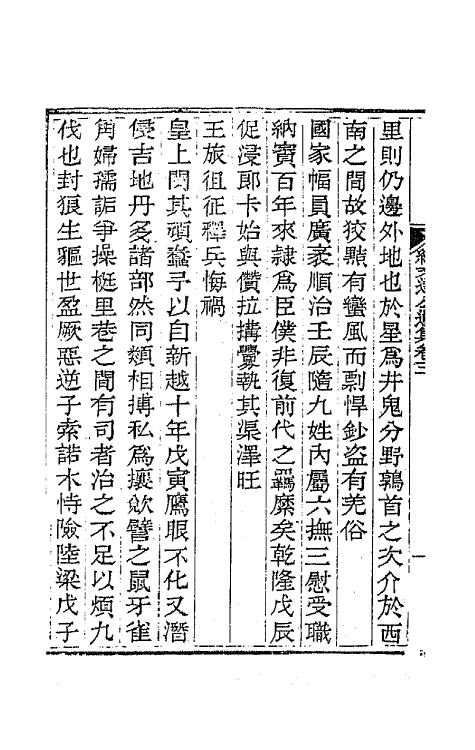 里則仍邊外地也於星為井鬼分野鶉首之次介於西
南之間故狡黠有蠻風而剽悍鈔盜有羌俗
國家幅員廣袤順治壬辰隨九姓內屬六撫三慰受職
納賨百年來隷為臣僕非復前代之羈縻矣乾隆戊辰
促浸郎卡始與儹拉搆釁執其渠澤旺
王旅徂征釋兵悔禍
皇上閔其頑蠢予以自新越十年戊寅鷹眼不化又潛
侵吉地丹多諸部然同類相搏私為攘敚譬之鼠牙雀
角婦孺詬爭操梃里巷之間有司者治之不足以煩九
伐也封狼生貙世盈厥惡逆子索諾木恃險陸梁戊子
卷三
一